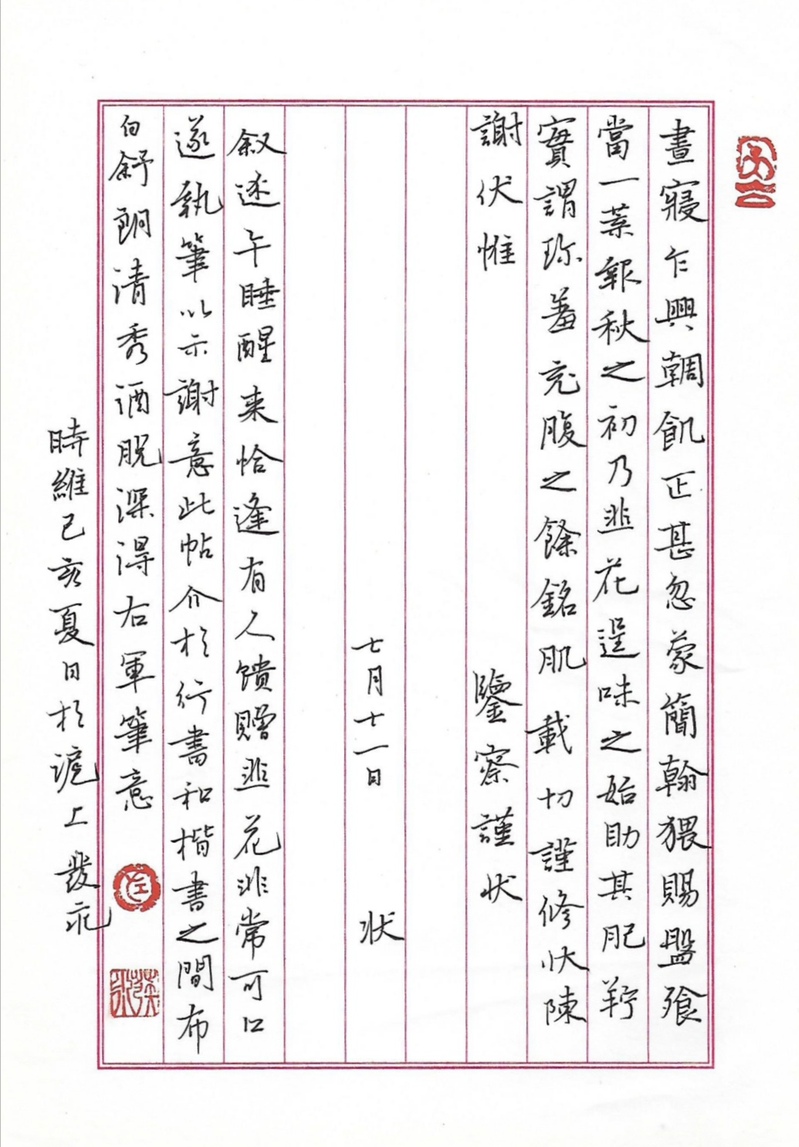 晝寢乍興輖飢正甚忽蒙簡翰猥賜盤飧
當一葉報秋之初乃韭花逞味之始助其肥羜
實謂珍羞充腹之餘銘肌載切謹修狀陳
謝伏惟 鑒察謹狀
七月十一日 狀
叙述午睡醒来恰逢有人馈赠韭花非常可口
遂執筆以示謝意此帖介於行書和楷書之間布
白舒朗清秀洒脱深得右軍筆意
時維己亥夏日於滬上